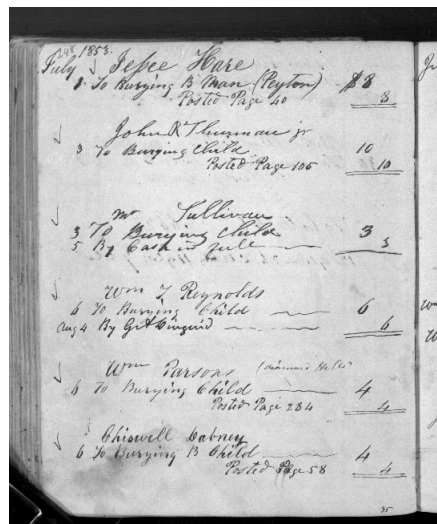 248 1853.
July Jessee Hare
1 To Burying B Man (Peyton) $8
Posted Page 40 8
John R Thurman jr
3 To Burying Child 10
Posted Page 105 10
Mr Sullivan
3 To Burying child 3
5 By Cash in full 3
Wm Reynolds
6 To Burying Child 6
Aug 4 By 6
Wm Parsons
6 To Burying Child 4
Posted Page 284 4
Chiswell Dabney
6 To Burying B Child 4
Posted Page 58 4
35